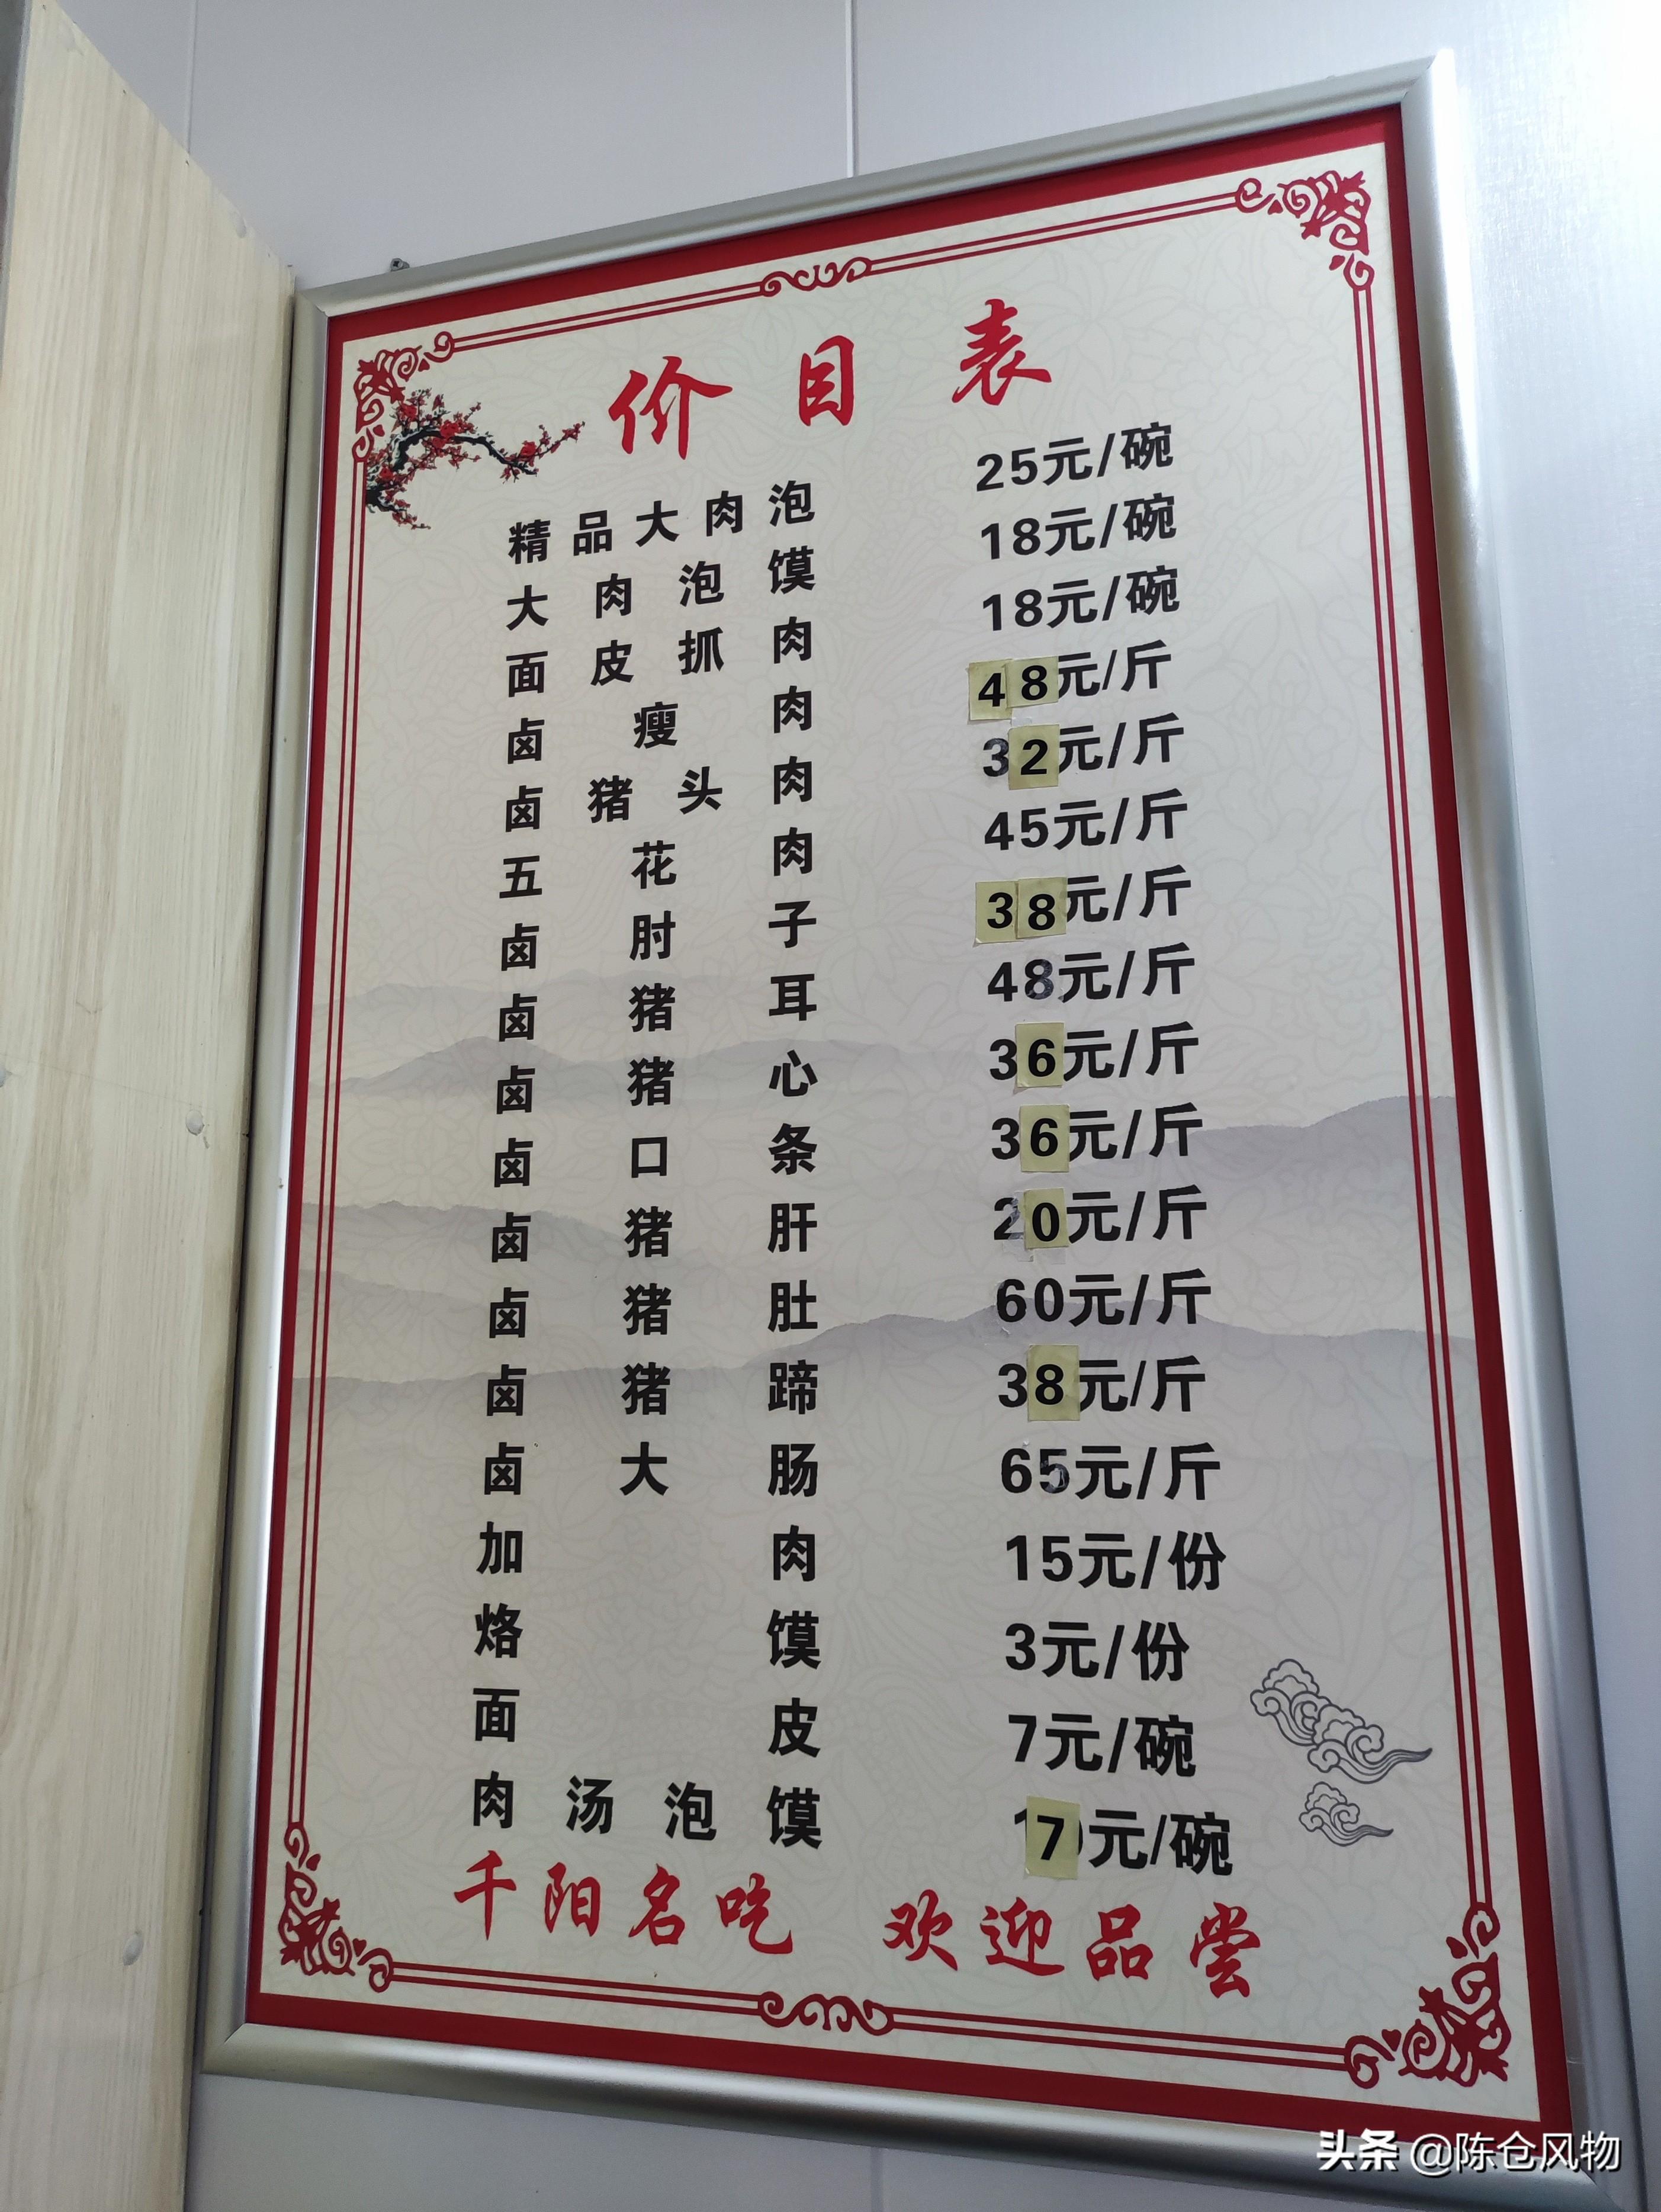 价目表
精品大肉泡 25元/碗
大肉泡馍 18元/碗
面皮抓肉 18元/碗
卤瘦肉 48元/斤
卤猪头肉 32元/斤
五花肉 45元/斤
卤肘子 38元/斤
卤猪耳 48元/斤
卤猪心 36元/斤
卤口条 36元/斤
卤猪肝 20元/斤
卤猪肚 60元/斤
卤猪蹄 38元/斤
卤大肠 65元/斤
加肉 15元/份
烙馍 3元/份
面皮 7元/碗
肉汤泡馍 7元/碗
千阳名吃 欢迎品尝
头条 @陈仓风物